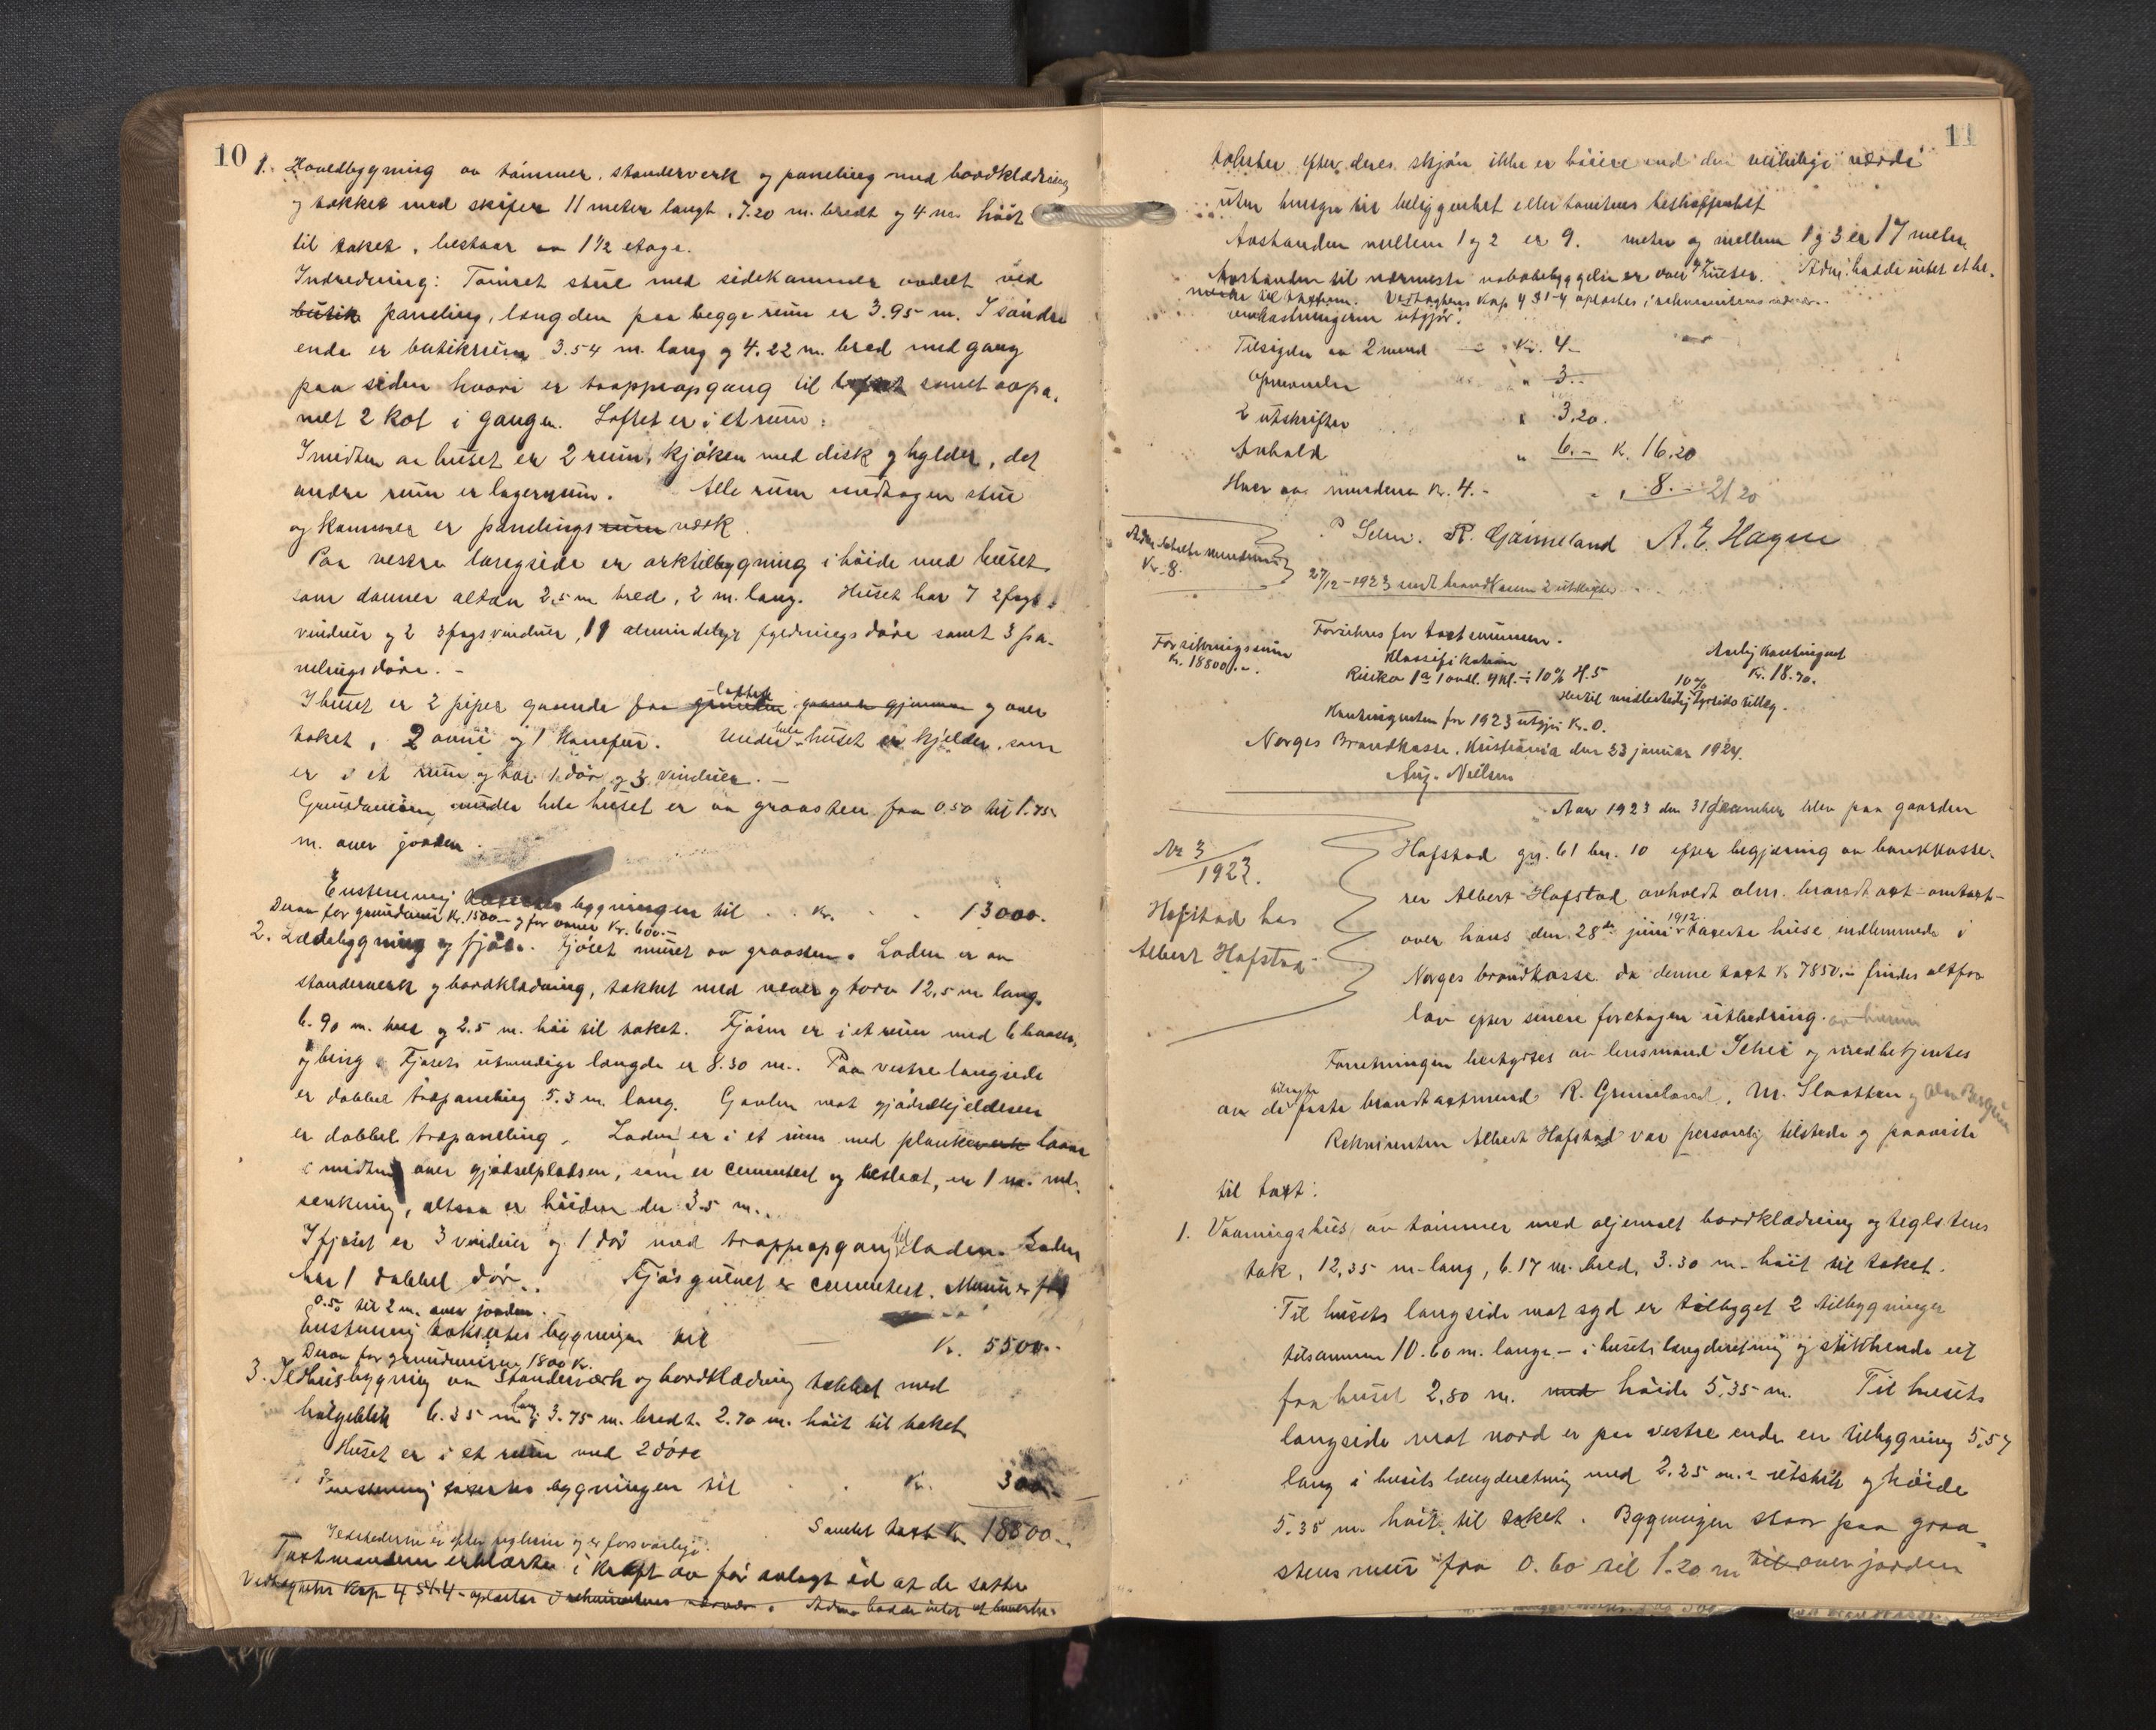 10
1. Hovedbygning av tømmer, standerverk og paneling med bordklædning
og tækket med skifer 11 meter langt, 7.20 m. bredt og 4 m. høit
til taket, bestaar av 1½ etage.
Indredning: Tømret stue med sidekammer avdelt ved
butik paneling, længden paa begge rum er 3.95 m. I søndre
ende er butikrum 3.54 m. lang og 4.22 m. bred med gang
paa siden hvori er trappeopgang til loftet samt avpa-
nelt 2 kot i gangen. Loftet er i et rum.
I midten av huset er 2 rum, kjøken med disk og hylder, det
andre rum er lagerrum. Alle rum undtagen stue
og kammer er panelings rum verk.
Paa vestre langside er arktilbygning i høide med huset
som danner altan 2.5 m bred, 2 m. lang. Huset har 7 2fags
vinduer og 2 3fagsvinduer, 11 almindelige fyldningsdøre samt 3 pa-
nelingsdøre. -
I huset er 2 piper gaaende fra grunden loftet gaaende gjennem og over
taket, 2 ovne og 1 komfur. Under hele huset er kjelder, som
er i et rum og har 1 dør og 3 vinduer. -
Grundmuren under hele huset er av graasten fra 0.50 til 1.75
m. over jorden.
Enstemmig takseres bygningen til . . kr. . . 13000.
Derav for grundmur Kr. 1500 - og for ovner Kr. 600.-
2. Ladebygning og fjøs. Fjøset muret av graasten. Laden er av
standerverk og bordklædning, tækket med never og torv 12,5 m. lang,
6.90 m. bred og 2.5 m. høi til taket. Fjøsen er i et rum med 6 baaser
og bing. Fjøsets utvendige længde er 8.30 m.. Paa vestre langside
er dobbel træpaneling 5.3 m. lang. Gavlen mot gjødselkjelderen
er dobbel træpaneling. Laden er i et rum med plankeverk laave
i midten over gjødselpladsen, som er cementert og beslaat, er 1 m. ned-
senkning, altsaa er høiden der 3.5 m..
I fjøset er 3 vinduer og 1 dør med trappeopgang til laden. Laden
har 1 dobbel dør.. Fjøsgulvet er cementert. Muren er fra
0.50 til 2 m. over jorden.
Enstemmig takseres bygningen til — Kr. 5500.-
Derav for grundmuren 1800 K.
3. Ildhusbygning av standerverk og bordklædning tækket med
bølgeblik 6.35 m lang, 3.75 m. bredt. 2.70 m. høit til taket.
Huset er i et rum med 2 døre
Enstemmig takseres bygningen til . . Kr. 300.-
Samlet taxt Kr. 18800.-
Ildstederne er efter reglerne og er forsvarlige.
Taxtmændene erklærte i kraft av før avlagt ed at de satte
Vedtægter Kap 4 § 1-4 oplæstes i rekvirentens nærvær. Adm. hadde intet at bemerke.
11
takster efter deres skjøn ikke er høiere end den virkelige værdi
uten hensyn til beliggenhet eller tomtens beskaffenhet
Avstanden mellem 1 og 2 er 9. meter og mellem 1 og 3 er 17 meter.
Avstanden til nærmeste nabobebyggelse er over meter. Adm. hadde intet at be-
merke til taxten. Vedtægtens Kap 4 § 1-4 oplæstes i rekvirentens nærvær.
Omkostningerne utgjør:
Tilsigelse av 2 mænd — " Kr. 4.-
Opnævnelse " 3.-
2 utskrifter " 3.20.
Avhold " 6.- K. 16.20
Hver av mændene Kr. 4.- " 8.- 21 20
P Schei. R. Gjømeland A. E. Hagen
Adm. betalte mændene
Kr. 8.
27/12-1923 sendt brandkassen 2 utskrifter
Forsikringssum
Kr. 18800.-.
Forsikres for taxtsummen.
Klassifikation
Risiko 1a 1 avd. 4 kl. ÷ 10% H.5
Aarlig kontingent
Kr. 18.70.
10%
Hertil midlertidig dyrtidstillæg.
Kontingenten for 1923 utgjør Kr. 0.
Norges Brandkasse. Kristiania den 23 januar 1924.
Aug. Nielsen
Nr 3/1923.
Hofstad hos
Albert Hofstad
Aar 1923 den 31 december blev paa gaarden
Hofstad gn. 61 bn. 10 efter begjæring av bankkasse-
rer Albert Hofstad avholdt alm. brandtaxt - omtaxt -
over hans den 28de juni 1912 takserte huse, indlemmede i
Norges brandkasse da denne taxt Kr 7850.- findes altfor
lav efter senere foretagen utbedring.
Forretningen bestyrtes av lensmand Schei og medbetjentes
av de tilkaldte faste brandtaxtmænd R. Grimeland, M. Slaatten og
Rekvirenten Albert Hofstad var personlig tilstede og paaviste
til taxt:
1. Vaaningshus av tømmer med oljemalt bordklædning og teglstens
tak, 12,35 m. lang, 6.17 m. bred, 3.30 m. høit til taket.
Til husets langside mot syd er tilbygget 2 tilbygninger
tilsammen 10.60 m. lange - i husets længderetning og stikkende ut
fra huset 2,80 m. med høide 5,35 m. Til husets
langside mot nord er paa vestre ende en tilbygning 5,57
lang i husets længderetning med 2.25 m. utstik og høide
5.35 m. høit til taket. Bygningen staar paa graa-
stensmur fra 0.60 til 1.20 m til over jorden